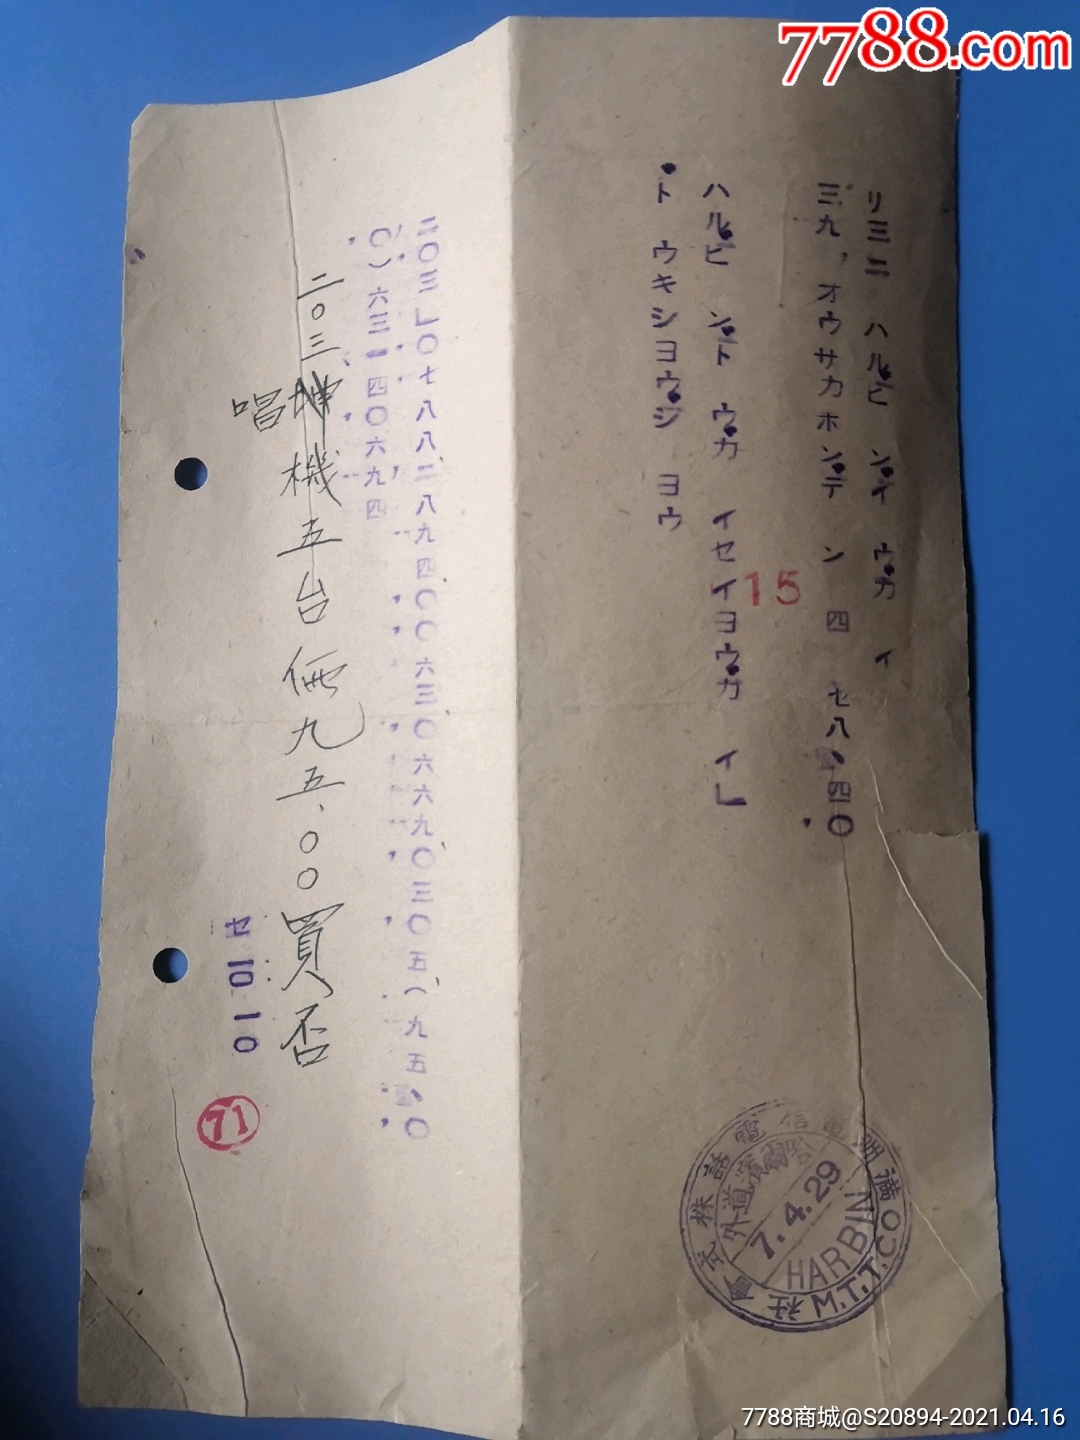 7788.com
リ三二 ハルビンイウカイ
三九,オウサカホンデン 四 七八、四〇
ハルビントウカイセイヨウガイ」
トウキシヨウジヨウ
15
二〇三」〇七八八二八九四〇〇六三〇六六九〇三〇五(九五、〇
〇)六三一四〇六九四
二〇三
唱機五台価九五.〇〇買否
セ 10.10
71
滿洲電信電話株式會社
哈爾濱道外
7.4.29
HARBIN
M.T.T.CO
7788商城@S20894-2021.04.16